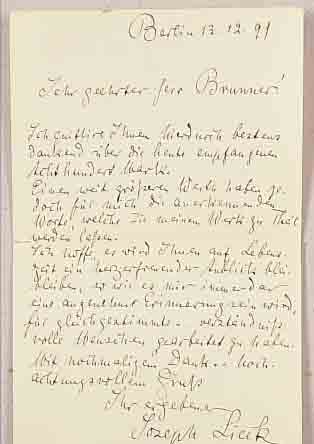 Berlin 13. 12. 91
Sehr geehrter Herr Brunner!
Ich quittire Ihnen hierdurch bestens
dankend über die heute empfangenen
Achthundert Mark.
Einen weit größeren Werth haben je-
doch für mich die anerkennenden
Worte welche Sie meinem Werk zu Theil
werden ließen.
Ich hoffe, es wird Ihnen auf Lebens-
zeit ein herzerfreuender Anblick blei-
bleiben, so wie es mir immerdar
eine angenehme Erinnerung sein wird,
für glücksgestimmte verständniß
volle Menschen gearbeitet zu haben.
Mit nochmaligem Dank u. hoch-
achtungsvollem Gruß
Ihr ergebener
Joseph Lieck